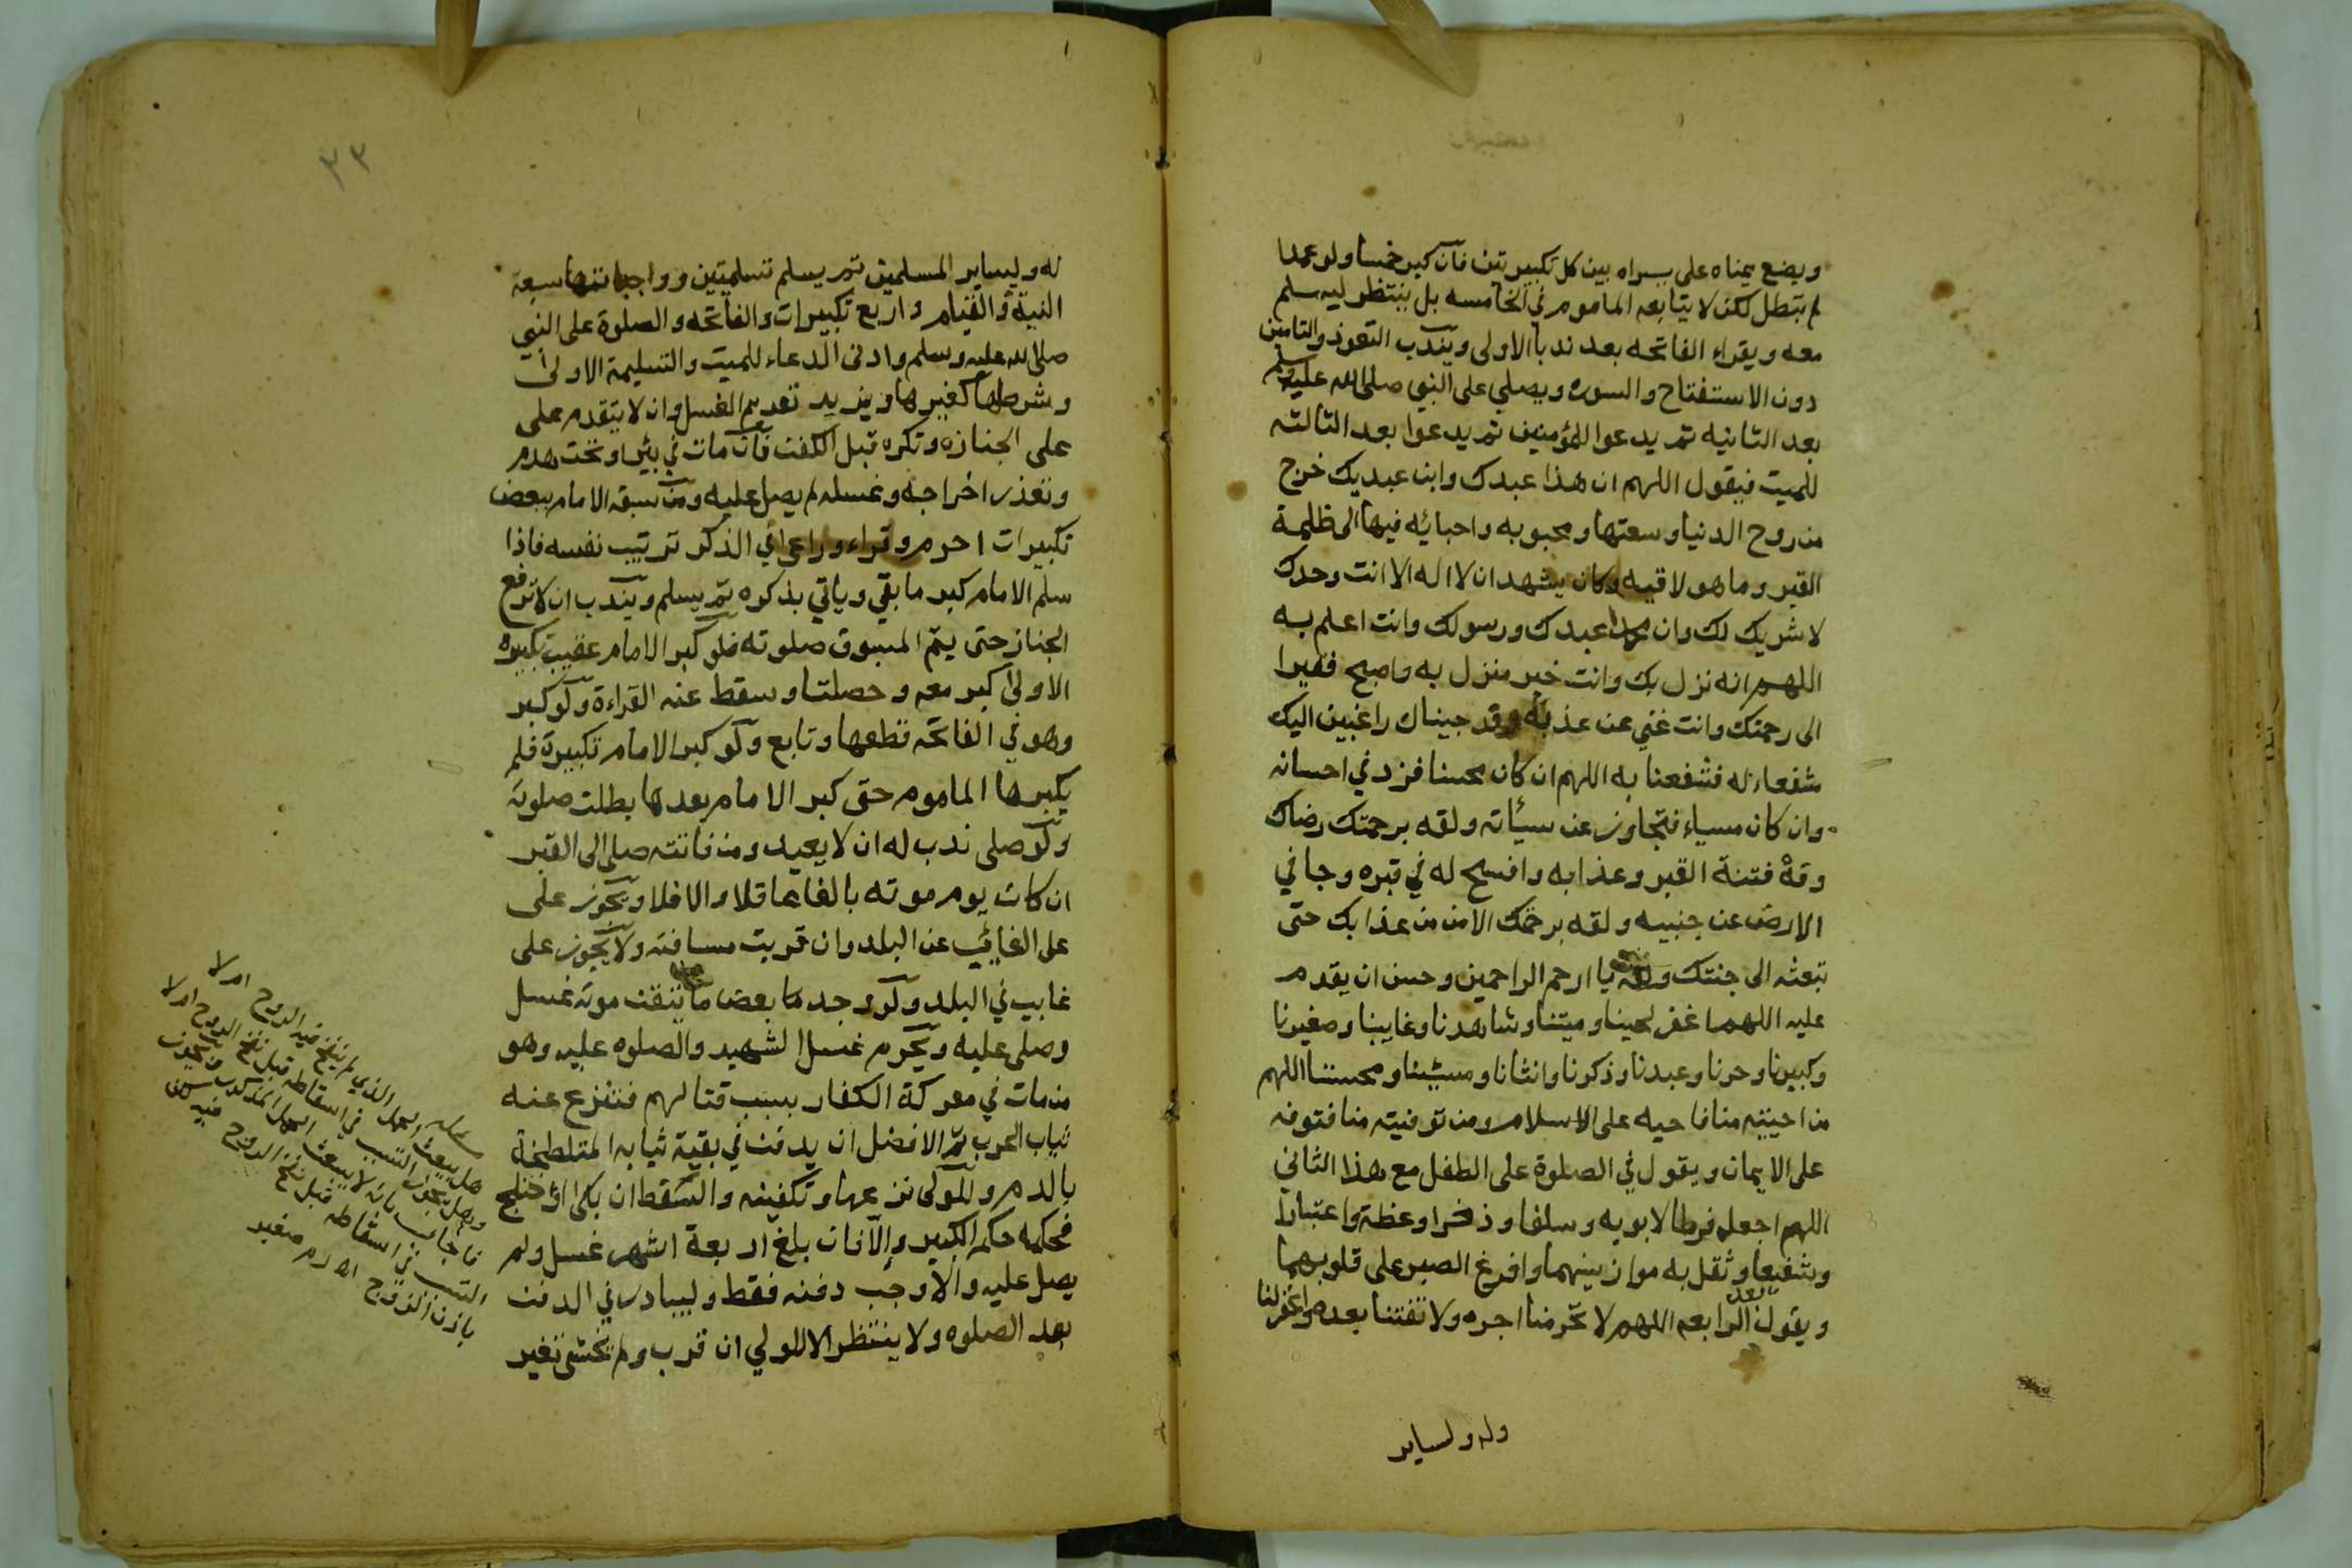 ويضع يمناه على يسراه بين كل تكبيرتين فان كبر خمسا ولو عمدا
لم تبطل لكن لا يتابعه الماموم في الخامسه بل ينتظر ليسلم
معه ويقراء الفاتحه بعد ندبا الاولى ويندب التعوذ والتامين
دون الاستفتاح والسوره ويصلي على النبي صلى الله عليه وسلم
بعد الثانيه ثم يدعوا للمؤمنين ثم يدعوا بعد الثالثه
للميت فيقول اللهم ان هذا عبدك وابن عبديك خرج
من روح الدنيا وسعتها ومحبوبه واحبائه فيها الى ظلمة
القبر وما هو لاقيه وكان يشهد ان لا اله الا انت وحدك
لا شريك لك وان محمدا عبدك ورسولك وانت اعلم به
اللهم انه نزل بك وانت خير منزل به واصبح فقيرا
الى رحمتك وانت غني عن عذابه وقد جيناك راغبين اليك
شفعاء له فشفعنا به اللهم ان كان محسنا فزد في احسانه
وان كان مسياء فتجاوز عن سيأته ولقه برحمتك رضاك
وقه فتنة القبر وعذابه وافسح له في قبره وجافي
الارض عن جنبيه ولقه برحمتك الامن من عذابك حتى
تبعثه الى جنتك يا ارحم الراحمين وحسن ان يقدم
عليه اللهم اغفر لحينا وميتنا وشاهدنا وغايبنا وصغيرنا
وكبيرنا وحرنا وعبدنا وذكرنا وانثانا ومسيئنا ومحسننا اللهم
من احييته منا فاحيه على الاسلام ومن توفيته منا فتوفه
على الايمان ويقول في الصلوة على الطفل مع هذا الثاني
اللهم اجعله فرطا لابويه وسلفا وذخرا وعظة واعتبارا
وشفيعا وثقل به موازينهما وافرغ الصبر على قلوبهما
ويقول بعد الرابعه اللهم لا تحرمنا اجره ولا تفتنا بعده واغفر لنا
وله ولساير
٢٣
له وليساير المسلمين ثم يسلم تسلميتين وواجباتها سبعة
النية والقيام واربع تكبيرات والفاتحه والصلوة على النبي
صلى الله عليه وسلم وادنى الدعاء للميت والتسليمة الاولى
وشرطها كغيرها ويزيد تقديم الغسل وان لا يتقدم على
على الجنازه وتكره قبل الكفن فان مات في بئر او تحت هدم
وتعذر اخراجه وغسله لم يصل عليه ومن سبقه الامام ببعض
تكبيرات احرم وقراء وراعى في الذكر ترتيب نفسه فاذا
سلم الامام كبر ما بقي وياتي بذكره ثم يسلم ويندب ان لا ترفع
الجناز حتى يتم المسبوق صلوته فلو كبر الامام عقيب تكبيره
الاولى كبر معه وحصلتا وسقط عنه القراءة ولو كبر
وهو في الفاتحه قطعها وتابع ولو كبر الامام تكبيرة فلم
يكبرها الماموم حتى كبر الامام بعدها بطلت صلوته
ولو صلى ندب له ان لا يعيد ومن فاتته صلى الى القبر
ان كان يوم موته بالغا عاقلا والا فلا ويجوز على
على الغايب عن البلد وان قربت مسافته ولا يجوز على
غايب في البلد ولو وجد بعض ما تيقن موته غسل
وصلى عليه ويحرم غسل الشهيد والصلوه عليه وهو
من مات في معركة الكفار بسبب قتالهم فتنزع عنه
ثياب الحرب ثم الافضل ان يدفن في بقية ثيابه المتلطخة
بالدم وللولى نزعها وتكفينه والسقط ان بكى او اختلج
فحكمه حكم الكبير والا فان بلغ اربعة اشهر غسل ولم
يصل عليه والا وجب دفنه فقط وليبادر في الدفن
بعد الصلوه ولا ينتظر الا الولي ان قرب ولم يخشى تغير
هل يبعث الحمل الذي لم ينفخ فيه الروح ام لا
وهل يجوز التسبب في اسقاطه قبل نفخ الروح ام لا
فاجاب بانه لا يبعث الحمل المذكور ويجوز
التسبب في اسقاطه قبل نفخ الروح فيه